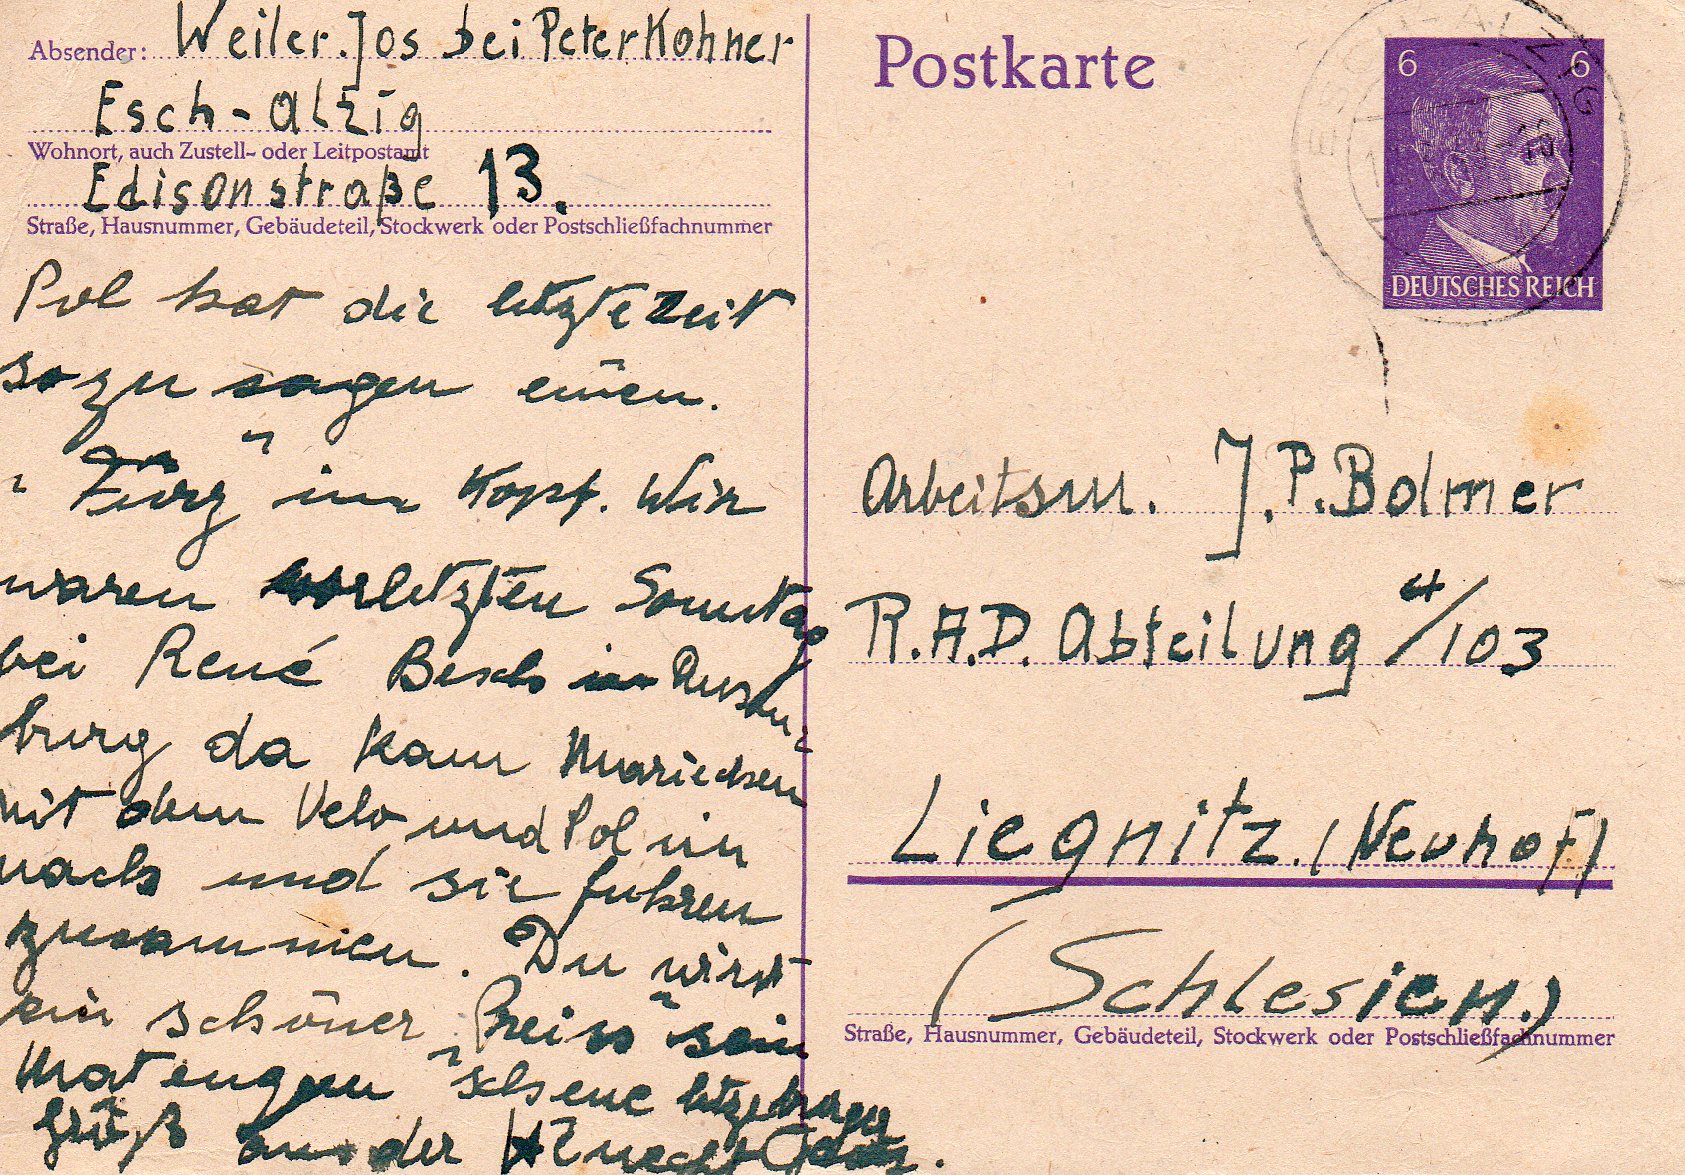 Absender: Weiler. Jos bei Peter Kohner
Esch-Alzig
Wohnort, auch Zustell- oder Leitpostamt
Edisonstraße 13.
Straße, Hausnummer, Gebäudeteil, Stockwerk oder Postschließfachnummer
Pol hat die letzte Zeit
so zu sagen einen.
"Fürz" im Kopf. Wir
waren vorletzten Sonntag
bei René Besch in
burg da kam Mariechen
mit dem Velo und Pol im
nach und sie fuhren
zusammen. Du wirst
ein schöner "Preiss" sein
"schene letzeburger
Grüß aus der
Postkarte
6 6
DEUTSCHES REICH
ESCH-ALZIG
Arbeitsm. J. P. Bolmer
R.A.D. Abteilung 4/103
Liegnitz. (Neuhof)
(Schlesien.)
Straße, Hausnummer, Gebäudeteil, Stockwerk oder Postschließfachnummer